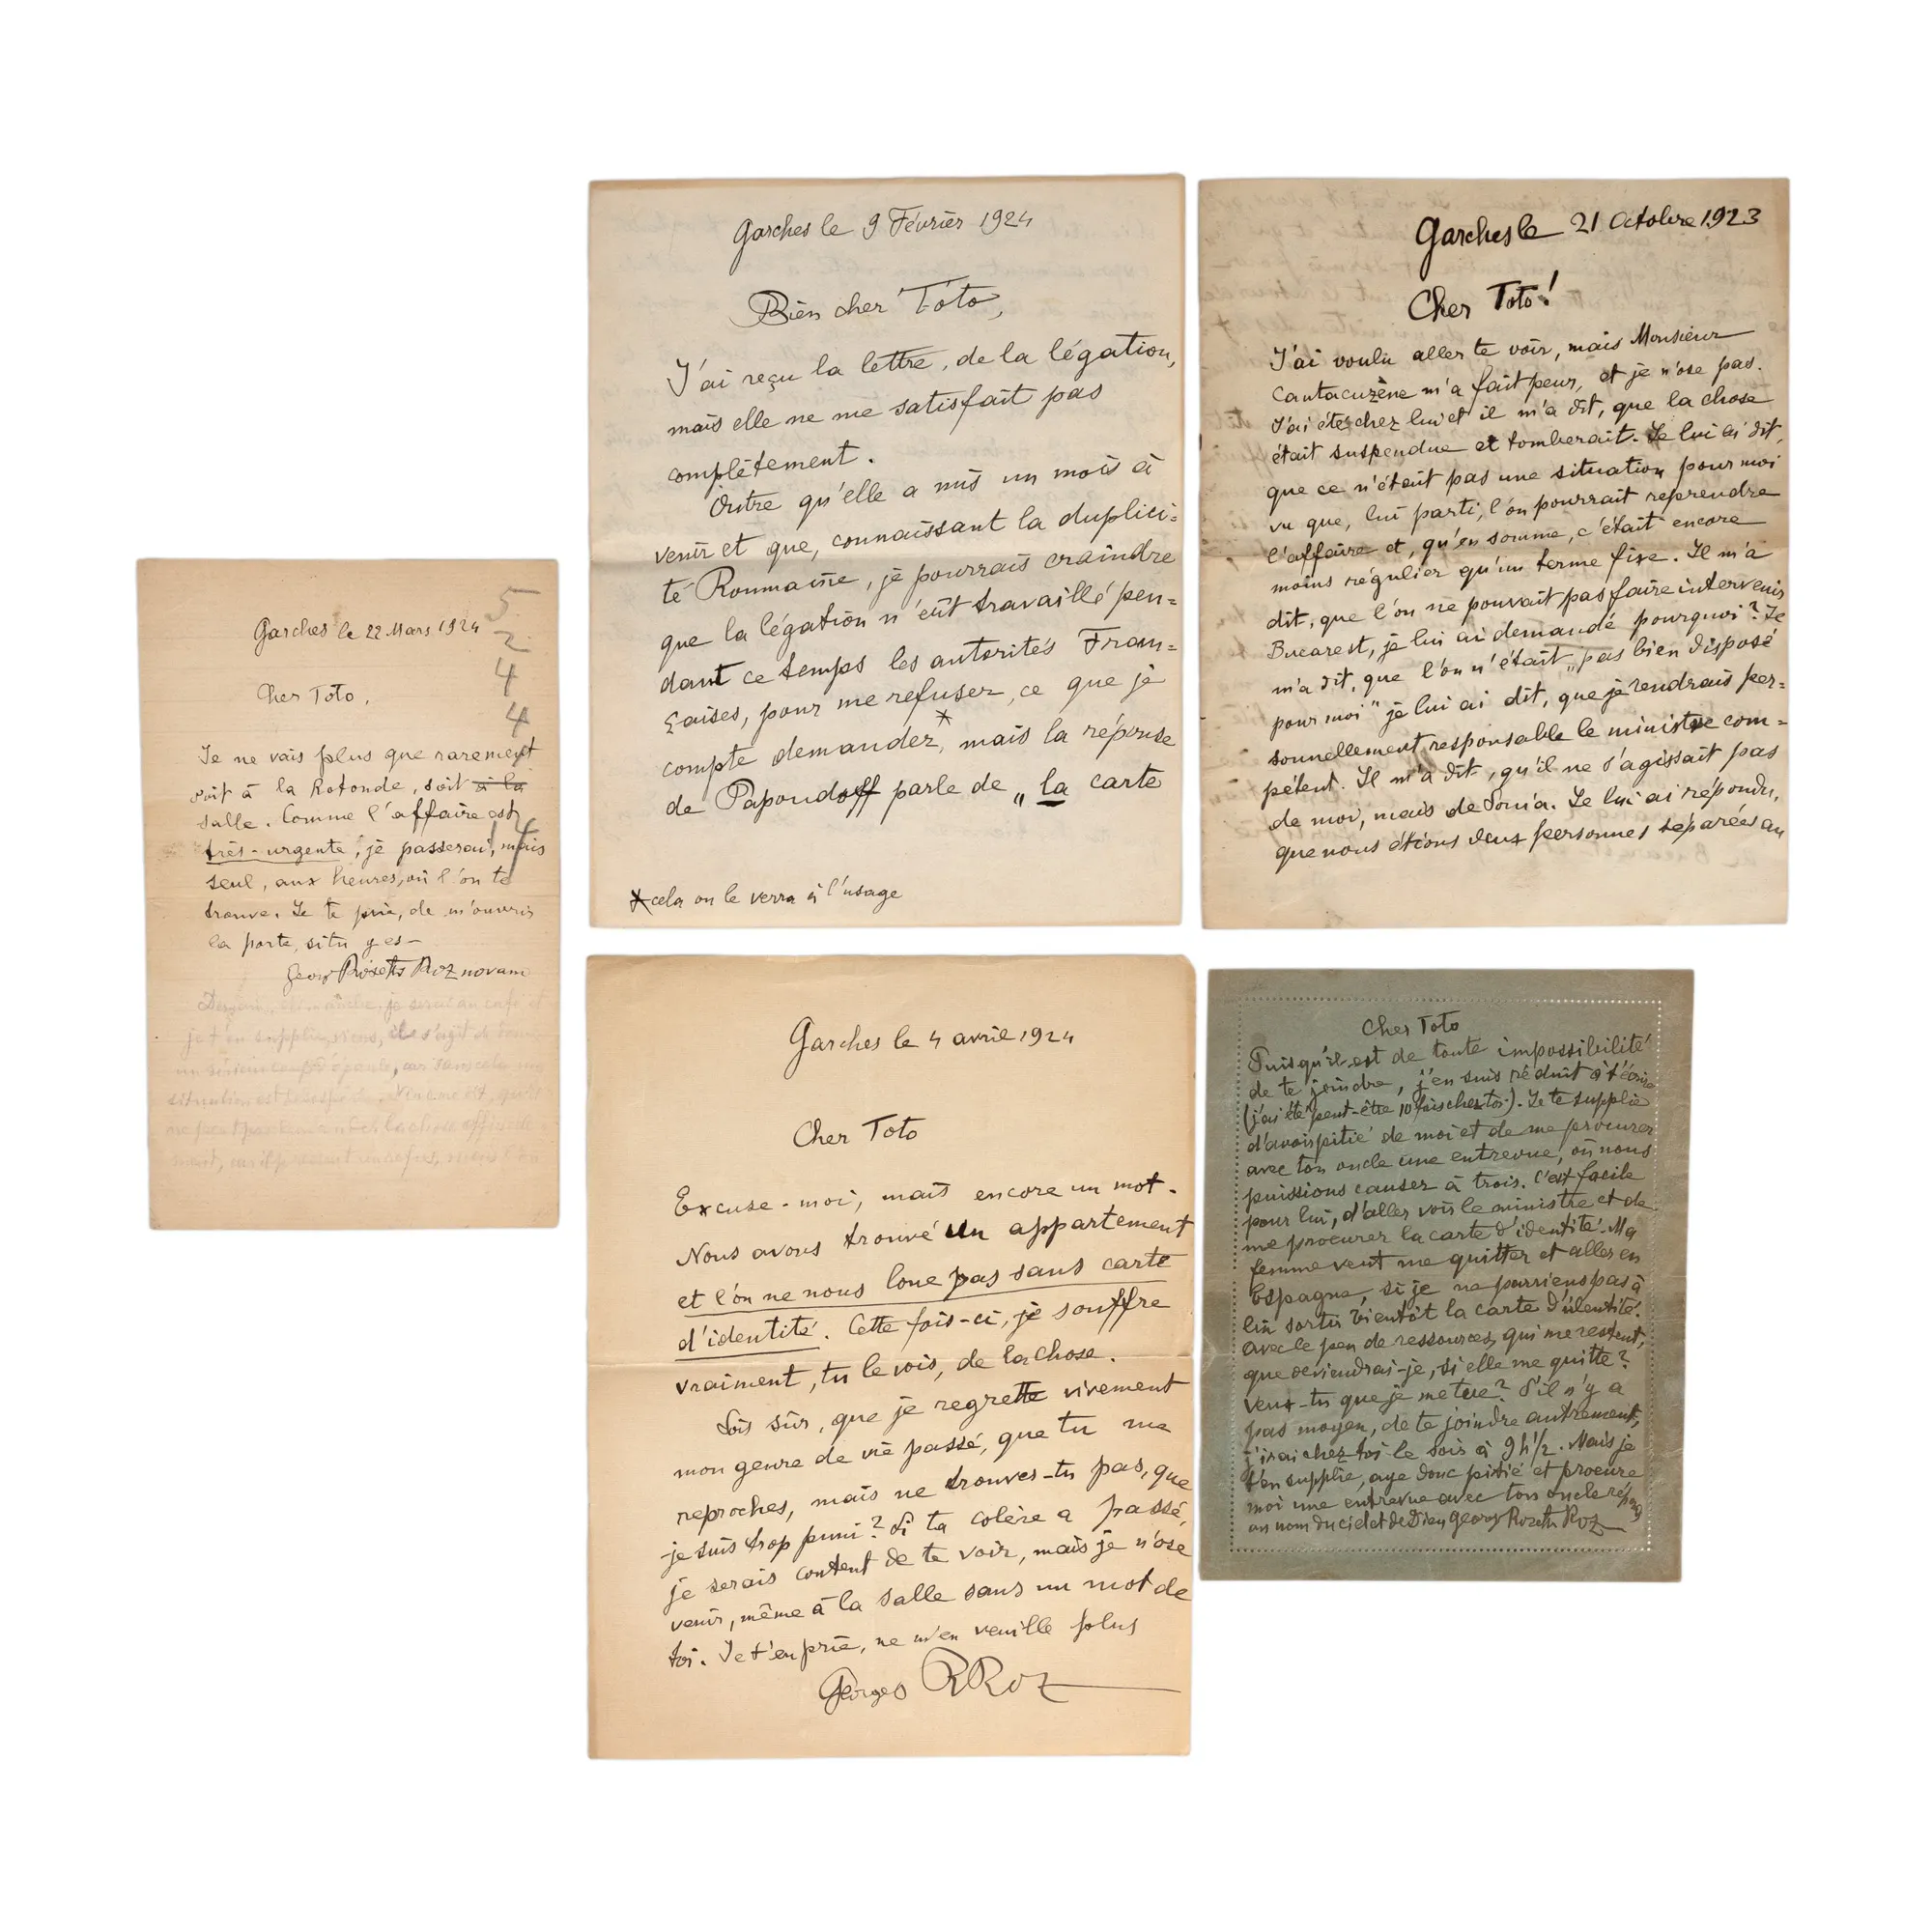 Garches le 22 Mars 1924
5
2
4
4
14
Cher Toto,
Je ne vais plus que rarement
soit à la Rotonde, soit à la
salle. Comme l'affaire est
très-urgente, je passerai, mais
seul, aux heures, où l'on te
trouve. Je te prie, de m'ouvrir
la porte, si tu y es —
Georg Rosetti Roznovanu
je serai au café, et
je t'en supplie, viens, il s'agit de
situation est
Garches le 9 Février 1924
Bien cher Toto,
J'ai reçu la lettre, de la légation,
mais elle ne me satisfait pas
complètement.
Outre qu'elle a mis un mois à
venir et que, connaissant la duplici=
té Roumaine, je pourrais craindre
que la légation n'eût travaillé pen=
dant ce temps les autorités Fran=
çaises, pour me refuser, ce que je
compte demander*, mais la réponse
de Papoudoff parle de „la carte
*cela on le verra à l'usage
Garches le 21 Octobre 1923
Cher Toto!
J'ai voulu aller te voir, mais Monsieur
Cantacuzène m'a fait peur, et je n'ose pas.
J'ai été chez lui et il m'a dit, que la chose
était suspendue et tomberait. Je lui ai dit,
que ce n'était pas une situation pour moi
vu que, lui parti, l'on pourrait reprendre
l'affaire et, qu'en somme, c'était encore
moins régulier qu'un terme fixe. Il m'a
dit, que l'on ne pouvait pas faire intervenir
Bucarest, je lui ai demandé pourquoi? Je
m'a dit, que l'on n'était „pas bien disposé
pour moi" je lui ai dit, que je rendrais per=
sonnellement responsable le ministre com=
pétent. Il m'a dit, qu'il ne s'agissait pas
de moi, mais de Sonia. Je lui ai répondu,
que nous étions deux personnes séparées au
Garches le 4 avril 1924
Cher Toto
Excuse-moi, mais encore un mot.
Nous avons trouvé un appartement
et l'on ne nous loue pas sans carte
d'identité. Cette fois-ci, je souffre
vraiment, tu le vois, de la chose.
Sois sûr, que je regrette vivement
mon genre de vie passé, que tu me
reproches, mais ne trouves-tu pas, que
je suis trop puni? Si ta colère a passé,
je serais content de te voir, mais je n'ose
venir, même à la salle sans un mot de
toi. Je t'en prie, ne m'en veuille plus
Georges RRoz
Cher Toto
Puisqu'il est de toute impossibilité
de te joindre, j'en suis réduit à t'écrire
(j'ai été peut-être 10 fois chez toi). Je te supplie
d'avoir pitié de moi et de me procurer
avec ton oncle une entrevue, où nous
puissions causer à trois. C'est facile
pour lui, d'aller voir le ministre et de
me procurer la carte d'identité. Ma
femme veut me quitter et aller en
Espagne, si je ne parviens pas à
lui sortir bientôt la carte d'identité.
Avec le peu de ressources, qui me restent,
que deviendrai-je, si elle me quitte?
Veux-tu que je me tue? S'il n'y a
pas moyen, de te joindre autrement,
j'irai chez toi le soir à 9 h 1/2. Mais je
t'en supplie, aye donc pitié et procure
moi une entrevue avec ton oncle
au nom du ciel et de Dieu Georg Rosetti Roz